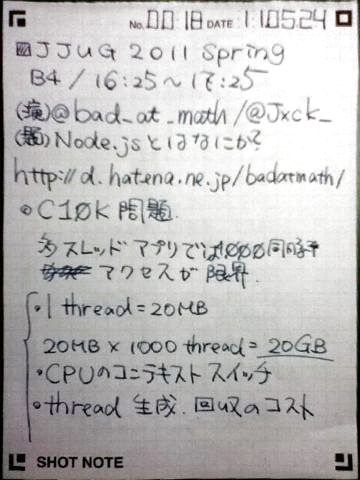 No. 00:18 DATE 11.05.24
JJUG 2011 Spring
B4 / 16:25～17:25
(演)@bad_at_math/@Jxck_
(題)Node.jsとはなにか?
http://d.hatena.ne.jp/badatmath/
C10K 問題.
多スレッドアプリでは1000同時
アクセスが限界.
・1 thread = 20MB
20MB × 1000 thread = 20GB
・CPUのコンテキストスイッチ
・thread 生成.回収のコスト
SHOT NOTE